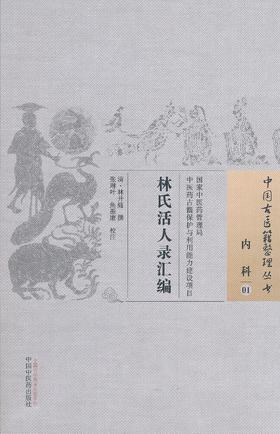 中国古医籍整理丛书
内科
01
国家中医药管理局
中医药古籍保护与利用能力建设项目
林氏活人录汇编
清·林开燧 撰
张琳叶 焦振廉 校注
中国中医药出版社